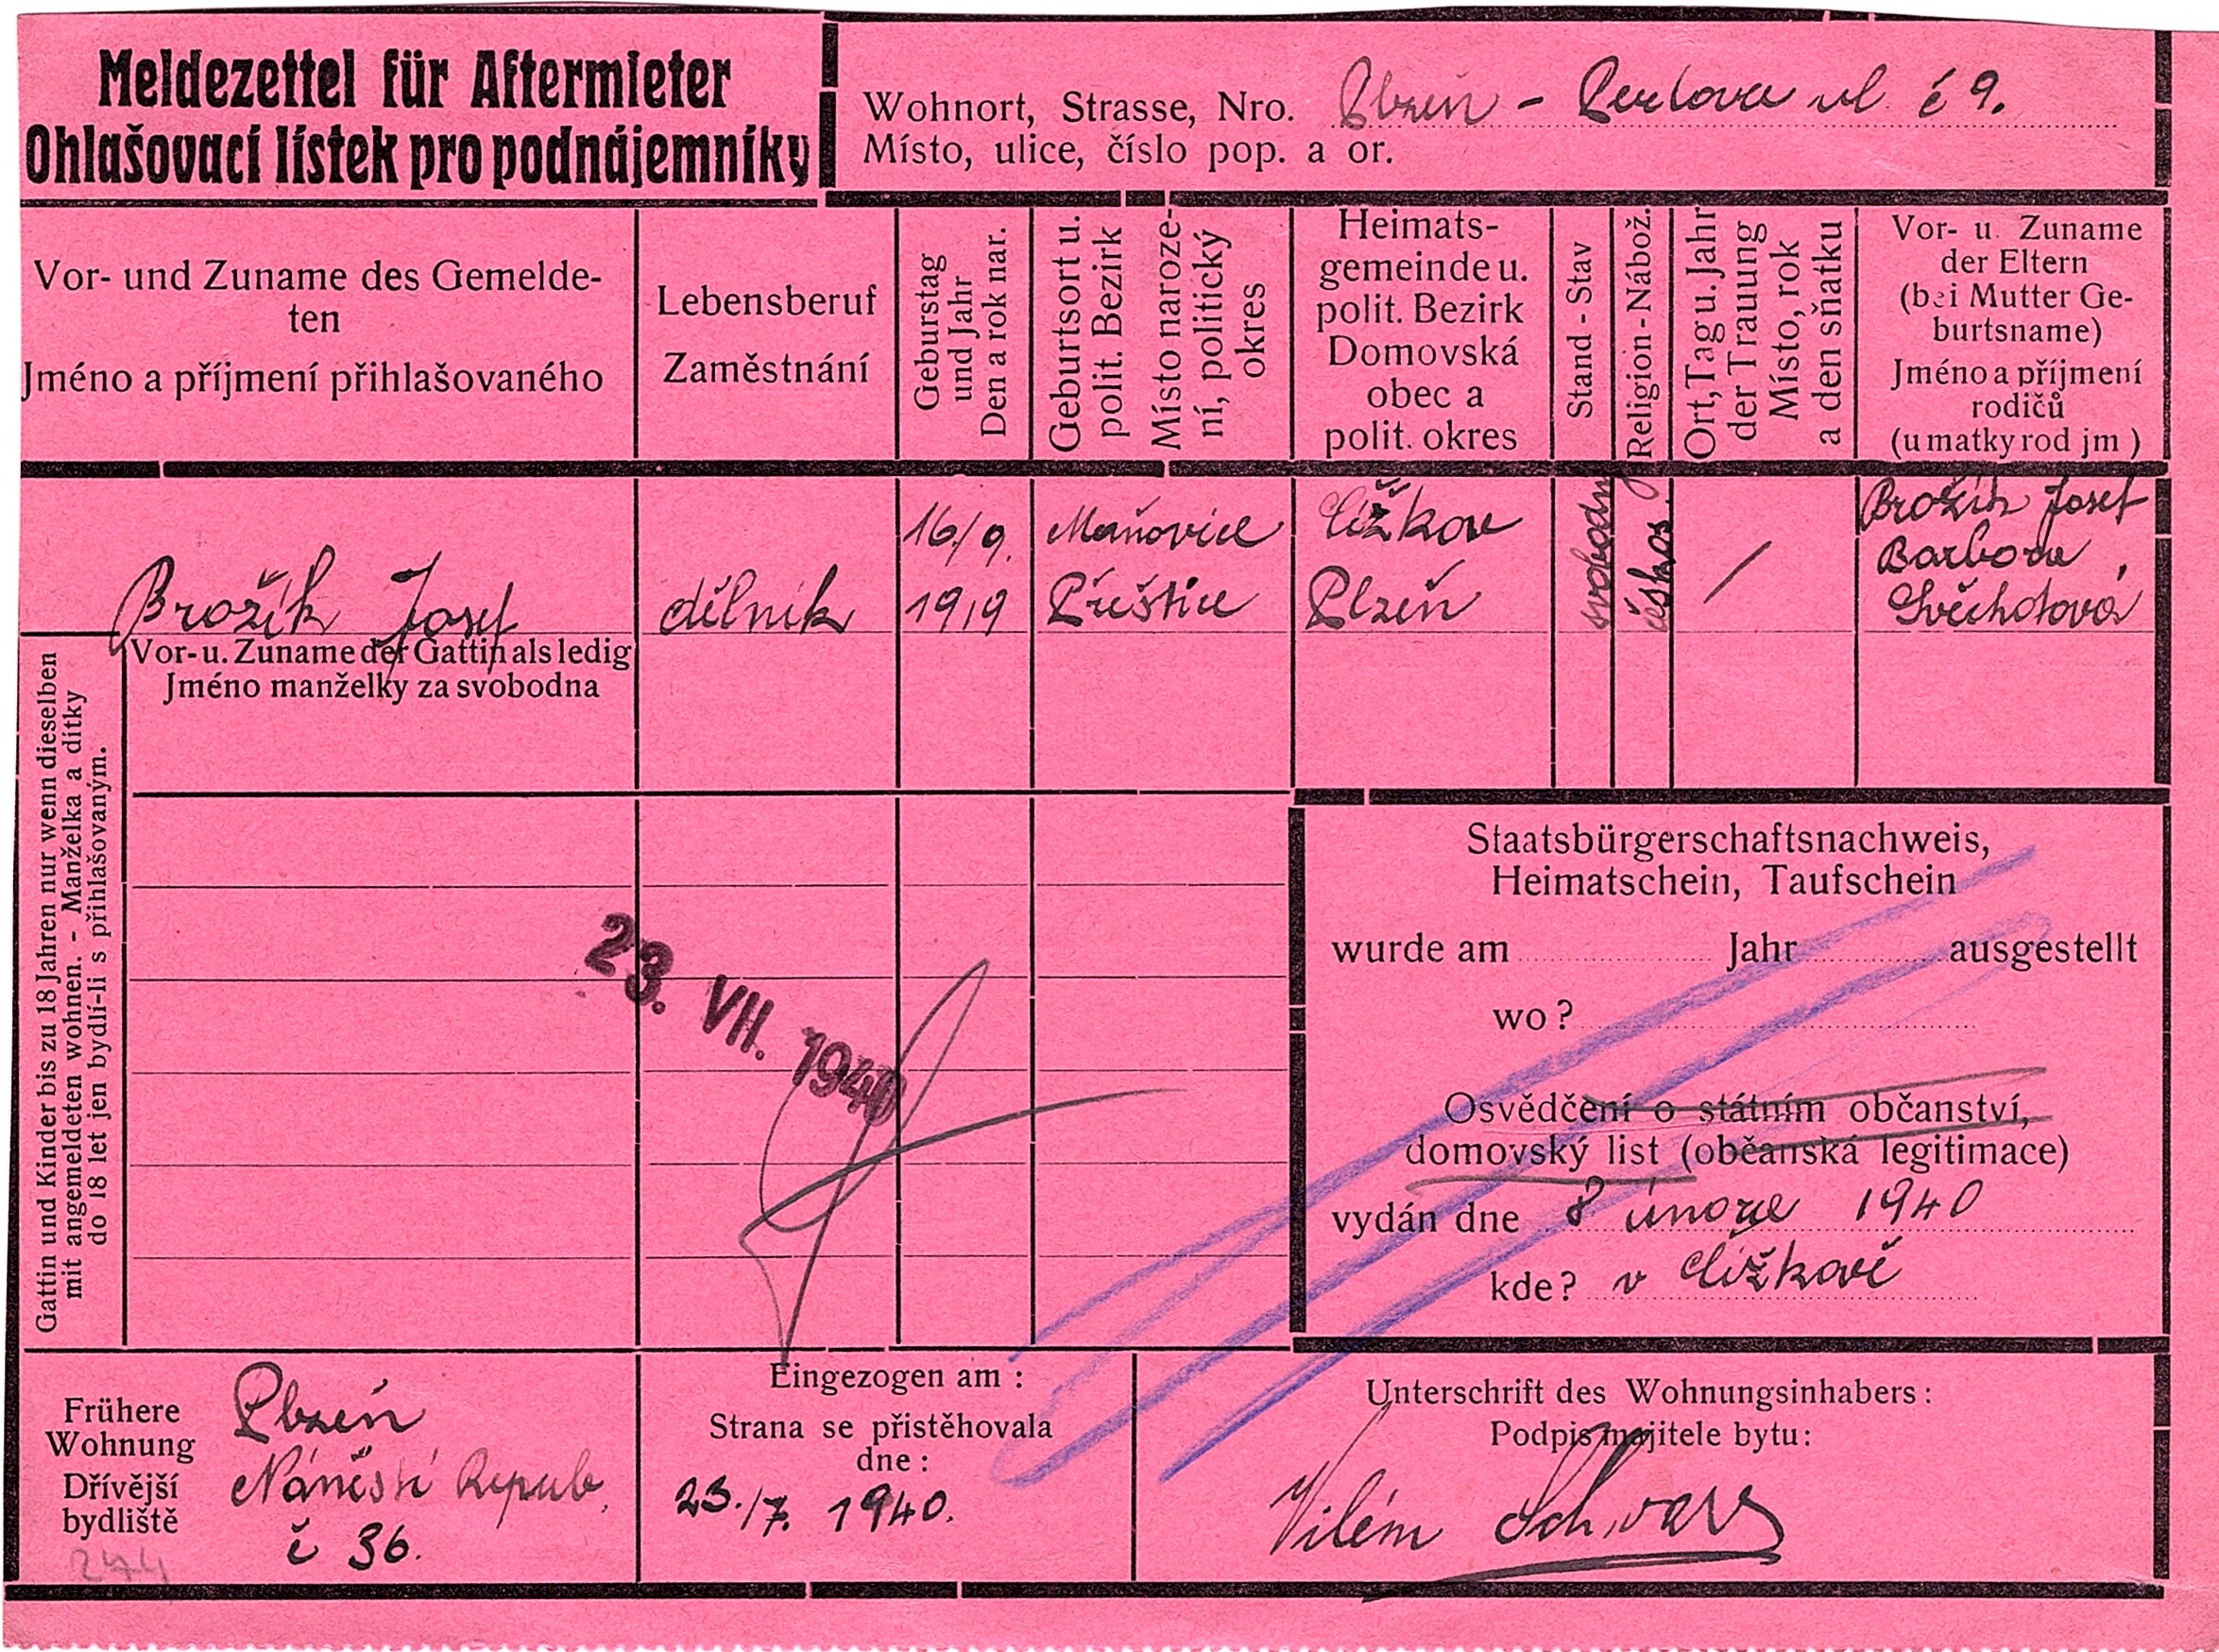 Meldezettel für Aftermieter
Ohlašovací lístek pro podnájemníky
Wohnort, Strasse, Nro. Plzeň - Perlova ul č 9.
Místo, ulice, číslo pop. a or.
Vor- und Zuname des Gemelde-
ten
Jméno a příjmení přihlašovaného
Lebensberuf
Zaměstnání
Geburstag
und Jahr
Den a rok nar.
Geburtsort u.
polit. Bezirk
Místo naroze-
ní, politický
okres
Heimats-
gemeinde u.
polit. Bezirk
Domovská
obec a
polit. okres
Stand - Stav
Religion - Nábož.
Ort, Tag u. Jahr
der Trauung
Místo, rok
a den sňatku
Vor- u. Zuname
der Eltern
(bei Mutter Ge-
burtsname)
Jméno a příjmení
rodičů
(u matky rod jm )
Brožík Josef
dělník
16./9.
1919
Maňovice
Přeštice
Čížkov
Plzeň
svobodný
českos.
/
Brožík Josef
Barbora,
Švéhotová
Vor- u. Zuname der Gattin als ledig
Jméno manželky za svobodna
Gattin und Kinder bis zu 18 Jahren nur wenn dieselben
mit angemeldeten wohnen. - Manželka a dítky
do 18 let jen bydlí-li s přihlašovaným.
23. VII. 1940
Staatsbürgerschaftsnachweis,
Heimatschein, Taufschein
wurde am Jahr ausgestellt
wo?
Osvědčení o státním občanství,
domovský list (občanská legitimace)
vydán dne 8 února 1940
kde? v Čížkově
Frühere
Wohnung
Dřívější
bydliště
Plzeň
Náměstí Repub.
č 36.
274
Eingezogen am :
Strana se přistěhovala
dne :
23./7. 1940.
Unterschrift des Wohnungsinhabers :
Podpis majitele bytu :
Vilém Schwarz